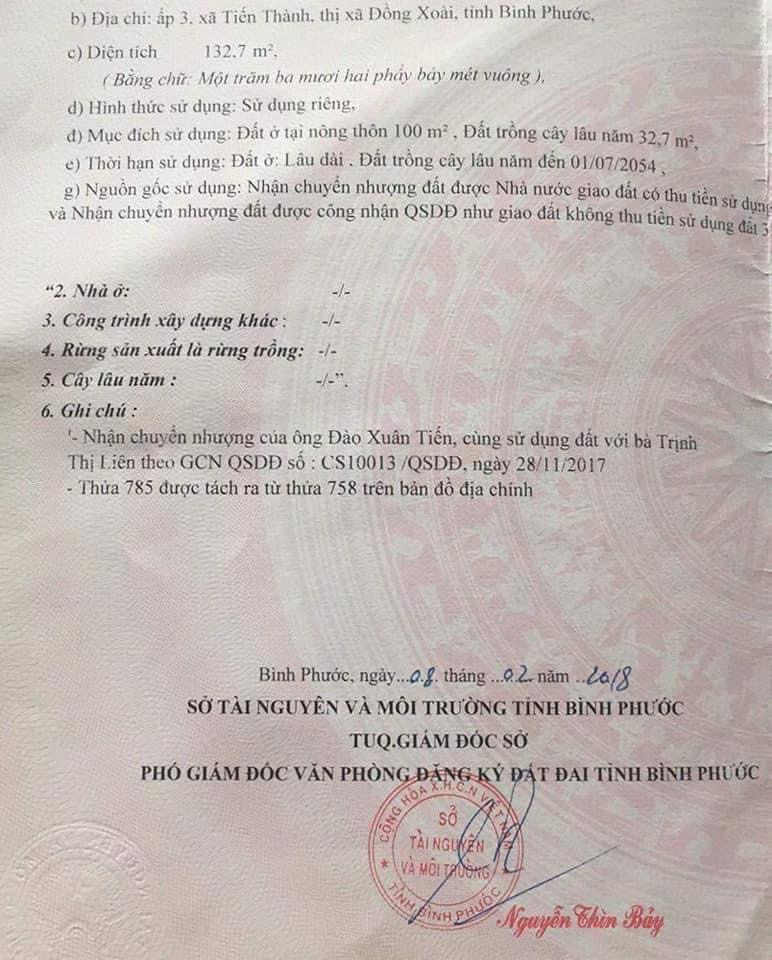 b) Địa chỉ: ấp 3, xã Tiến Thành, thị xã Đồng Xoài, tỉnh Bình Phước,
c) Diện tích 132,7 m²,
( Bằng chữ: Một trăm ba mươi hai phẩy bảy mét vuông ),
d) Hình thức sử dụng: Sử dụng riêng,
đ) Mục đích sử dụng: Đất ở tại nông thôn 100 m² , Đất trồng cây lâu năm 32,7 m²,
e) Thời hạn sử dụng: Đất ở: Lâu dài . Đất trồng cây lâu năm đến 01/07/2054 ,
g) Nguồn gốc sử dụng: Nhận chuyển nhượng đất được Nhà nước giao đất có thu tiền sử dụng
và Nhận chuyển nhượng đất được công nhận QSDĐ như giao đất không thu tiền sử dụng đất 3
“2. Nhà ở: -/-
3. Công trình xây dựng khác : -/-
4. Rừng sản xuất là rừng trồng: -/-
5. Cây lâu năm : -/-”.
6. Ghi chú :
'- Nhận chuyển nhượng của ông Đào Xuân Tiến, cùng sử dụng đất với bà Trịnh
Thị Liên theo GCN QSDĐ số : CS10013 /QSDĐ, ngày 28/11/2017
- Thửa 785 được tách ra từ thửa 758 trên bản đồ địa chính
Bình Phước, ngày...08. tháng ...02 năm ..2018
SỞ TÀI NGUYÊN VÀ MÔI TRƯỜNG TỈNH BÌNH PHƯỚC
TUQ.GIÁM ĐỐC SỞ
PHÓ GIÁM ĐỐC VĂN PHÒNG ĐĂNG KÝ ĐẤT ĐAI TỈNH BÌNH PHƯỚC
CỘNG HÒA X.H.C.N VIỆT NAM
SỞ
TÀI NGUYÊN
VÀ MÔI TRƯỜNG
TỈNH BÌNH PHƯỚC
Nguyễn Thìn Bảy